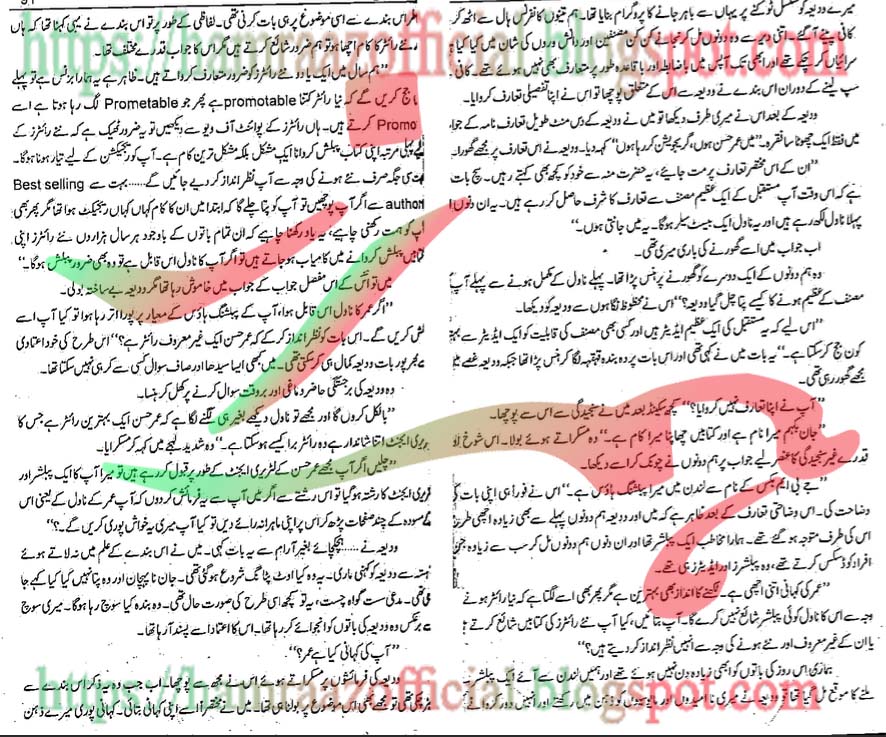 میرے ودیعہ کو مسلسل ٹوکنے پر یہاں سے باہر جانے کا پروگرام بنایا تھا۔ ہم تینوں کانفرنس ہال سے اٹھ کر
کافی پینے آ گئے۔ اتنی دیر سے وہ دونوں مل کر نجانے کن کن مصنفین اور دانش وروں کی شان میں کیا کیا
سرائیاں کر چکے تھے اور ابھی تک آپس میں باضابطہ اور باقاعدہ طور پر متعارف بھی نہیں ہوئے تھے۔ کافی
سپ لینے کے دوران اس بندے نے ودیعہ سے اس کے متعلق پوچھا تو اس نے اپنا تفصیلی تعارف کروایا۔
ودیعہ کے بعد اس نے میری طرف دیکھا تو میں نے ودیعہ کے دس منٹ طویل تعارف نامہ کے جواب
میں فقط ایک چھوٹا سا فقرہ۔ ”میں عمر حسن ہوں، گریجویشن کر رہا ہوں“ کہہ دیا۔ ودیعہ نے اس تعارف پر مجھے گھورا۔
”ان کے اس مختصر تعارف پر مت جائیے، یہ حضرت منہ سے خود کو کچھ بھی کہتے رہیں۔ سچ بات
ہے کہ اس وقت آپ مستقبل کے ایک عظیم مصنف سے تعارف کا شرف حاصل کر رہے ہیں۔ یہ ان دنوں اپنا
پہلا ناول لکھ رہے ہیں اور یہ ناول ایک بیسٹ سیلر ہو گا۔ یہ میں جانتی ہوں۔“
اب جواب میں اسے گھورنے کی باری میری تھی۔
وہ ہم دونوں کے ایک دوسرے کو گھورنے پر ہنس پڑا تھا۔ پہلے ناول کے مکمل ہونے سے پہلے آپ
مصنف کے عظیم ہونے کا کیسے پتا چل گیا ودیعہ؟“ اس نے محظوظ نگاہوں سے ودیعہ کو دیکھا۔
”اس لیے کہ یہ مستقبل کی ایک عظیم ایڈیٹر ہیں اور کسی بھی مصنف کی قابلیت کو ایک ایڈیٹر سے بہتر
کون جج کر سکتا ہے۔“ یہ بات میں نے کہی تھی اور اس بات پر وہ بندہ قہقہہ لگا کر ہنس پڑا تھا جبکہ ودیعہ غصے میں
مجھے گھور رہی تھی۔
”آپ نے اپنا تعارف نہیں کروایا؟“ کچھ سیکنڈ بعد میں نے سنجیدگی سے اس سے پوچھا۔
”جان بلہم میرا نام ہے اور کتابیں چھاپنا میرا کام ہے۔“ وہ مسکراتے ہوئے بولا۔ اس شوخ اور
قدرے غیر سنجیدگی کا عنصر لیے جواب پر ہم دونوں نے چونک کر اسے دیکھا۔
کے نام سے لندن میں میرا پبلشنگ ہاؤس ہے۔“ اس نے فوراً ہی اپنی بات کی
وضاحت کی۔ اس وضاحتی تعارف کے بعد ظاہر ہے کہ میں اور ودیعہ ہم دونوں پہلے سے بھی زیادہ اچھی طرح
اس کی طرف متوجہ ہو گئے تھے۔ ہمارا مخاطب ایک پبلشر تھا اور ان دنوں ہم دونوں مل کر سب سے زیادہ جن
افراد کو ڈسکس کرتے تھے، وہ پبلشرز اور ایڈیٹرز ہی تھے۔
”عمر کی کہانی اتنی اچھی ہے۔ لکھنے کا انداز بھی بہترین ہے مگر پھر بھی اسے لگتا ہے کہ نیا رائٹر ہونے
وجہ سے اس کا ناول کوئی پبلشر شائع نہیں کرے گا۔ آپ بتائیں، کیا آپ نئے رائٹرز کی کتابیں شائع کرتے ہیں
یا ان کے غیر معروف اور نئے ہونے کی وجہ سے انہیں نظر انداز کر دیتے ہیں؟“
ہماری اس روز کی باتوں کو ابھی زیادہ دن نہیں ہوئے تھے اور ہمیں لندن سے آئے ایک پبلشر سے
ملنے کا موقع مل گیا تھا تو ودیعہ نے میری ناامیدیوں اور مایوسیوں کو ذہن میں رکھتے اور انہیں دور کروانے
بندے سے اسی موضوع پر ہی بات کرنی تھی۔ لفاظی کے طور پر تو اس بندے نے یہی کہنا تھا کہ ہاں
نئے رائٹر کا کام اچھا ہو تو ہم ضرور شائع کرتے ہیں مگر اس کا جواب قدرے مختلف تھا۔
”ہم سال میں ایک یا دو نئے رائٹرز کو ضرور متعارف کرواتے ہیں۔ ظاہر ہے یہ ہمارا بزنس ہے تو پہلے
جج کریں گے کہ نیا رائٹر کتنا promotable ہے پھر جو Prometable لگ رہا ہوتا ہے اسے
Promo کرتے ہیں۔ ہاں رائٹرز کے پوائنٹ آف ویو سے دیکھیں تو یہ ضرور ٹھیک ہے کہ نئے رائٹرز کے
لیے پہلی مرتبہ اپنی کتاب پبلش کروانا ایک مشکل بلکہ مشکل ترین کام ہے۔ آپ کو ریجیکشن کے لیے تیار ہونا ہوگا۔
سی جگہ صرف نئے ہونے کی وجہ سے آپ نظر انداز کر دیے جائیں گے...... بہت سے Best selling
author سے اگر آپ پوچھیں تو آپ کو پتا چلے گا کہ ابتدا میں ان کا کام کہاں کہاں ریجیکٹ ہوا تھا مگر پھر بھی
آپ کو ہمت رکھنی چاہیے، یہ یاد رکھنا چاہیے کہ ان تمام باتوں کے باوجود ہر سال ہزاروں نئے رائٹرز اپنی
کتابیں پبلش کروانے میں کامیاب ہو جاتے ہیں تو اگر آپ کا ناول اس قابل ہے تو وہ بھی ضرور پبلش ہوگا۔“
میں تو اس کے اس مفصل جواب کے جواب میں خاموش رہا تھا مگر ودیعہ بے ساختہ بولی۔
”اگر عمر کا ناول اس قابل ہوا، آپ کے پبلشنگ ہاؤس کے معیار پر پورا اتر رہا ہوا تو کیا آپ اسے
پبلش کریں گے۔ اس بات کو نظر انداز کر کے کہ عمر حسن ایک غیر معروف رائٹر ہے؟“ اس طرح کی خود اعتمادی
سے بھرپور بات ودیعہ کمال ہی کر سکتی تھی۔ میں کبھی ایسا سیدھا اور صاف سوال کسی سے کر ہی نہیں سکتا تھا۔
وہ ودیعہ کی برجستگی حاضر دماغی اور بروقت سوال کرنے پر کھل کر ہنسا۔
”بالکل کروں گا اور مجھے تو ناول دیکھے بغیر ہی لگنے لگا ہے کہ عمر حسن ایک بہترین رائٹر ہے جس کا
لٹریری ایجنٹ اتنا شاندار ہے وہ رائٹر برا کیسے ہو سکتا ہے۔“ وہ شدید لہجے میں کہہ کر مسکرایا۔
”چلیں اگر آپ مجھے عمر حسن کے لٹریری ایجنٹ کے طور پر قبول کر رہے ہیں تو میرا آپ کا ایک پبلشر اور
لٹریری ایجنٹ کا رشتہ ہو گیا تو اس رشتے سے اگر میں آپ سے یہ فرمائش کر دوں کہ آپ عمر کے ناول کے یعنی اس
کے مسودہ کے چند صفحات پڑھ کر اس پر اپنی ماہرانہ رائے دیں تو کیا آپ میری یہ خواہش پوری کریں گے۔؟“
ودیعہ نے...... ہچکچائے بغیر آرام سے یہ بات کہی۔ میں نے اس بندے کے علم میں نہ لاتے ہوئے
آہستہ سے ودیعہ کو کہنی ماری۔ یہ وہ کیا اوٹ پٹانگ شروع ہو گئی تھی۔ جان نا پہچان اور وہ پتا نہیں کیا کیا کہے جا
رہی تھی۔ مدعی ست گواہ چست، یہ تو کچھ اسی طرح کی صورت حال تھی۔ وہ بندہ کیا سوچ رہا ہوگا۔ میری سوچ
کے برعکس وہ ودیعہ کی باتوں کو انجوائے کر رہا تھا۔ اس کا اعتماد اسے پسند آ رہا تھا۔
”آپ کی کہانی کیا ہے عمر؟“
ودیعہ کی فرمائشوں پر مسکراتے ہوئے اس نے مجھ سے پوچھا۔ اب جب ودیعہ یہ ذکر اس بندے سے
کر چکی تھی تو مجھے بھی اس موضوع پر بولنا ہی تھا۔ میں نے مختصراً اسے اپنی کہانی بتائی۔ کہانی پوری میرے ذہن
https://hamraazofficial.blogspot.com
https://hamraazofficial.blogspot.com